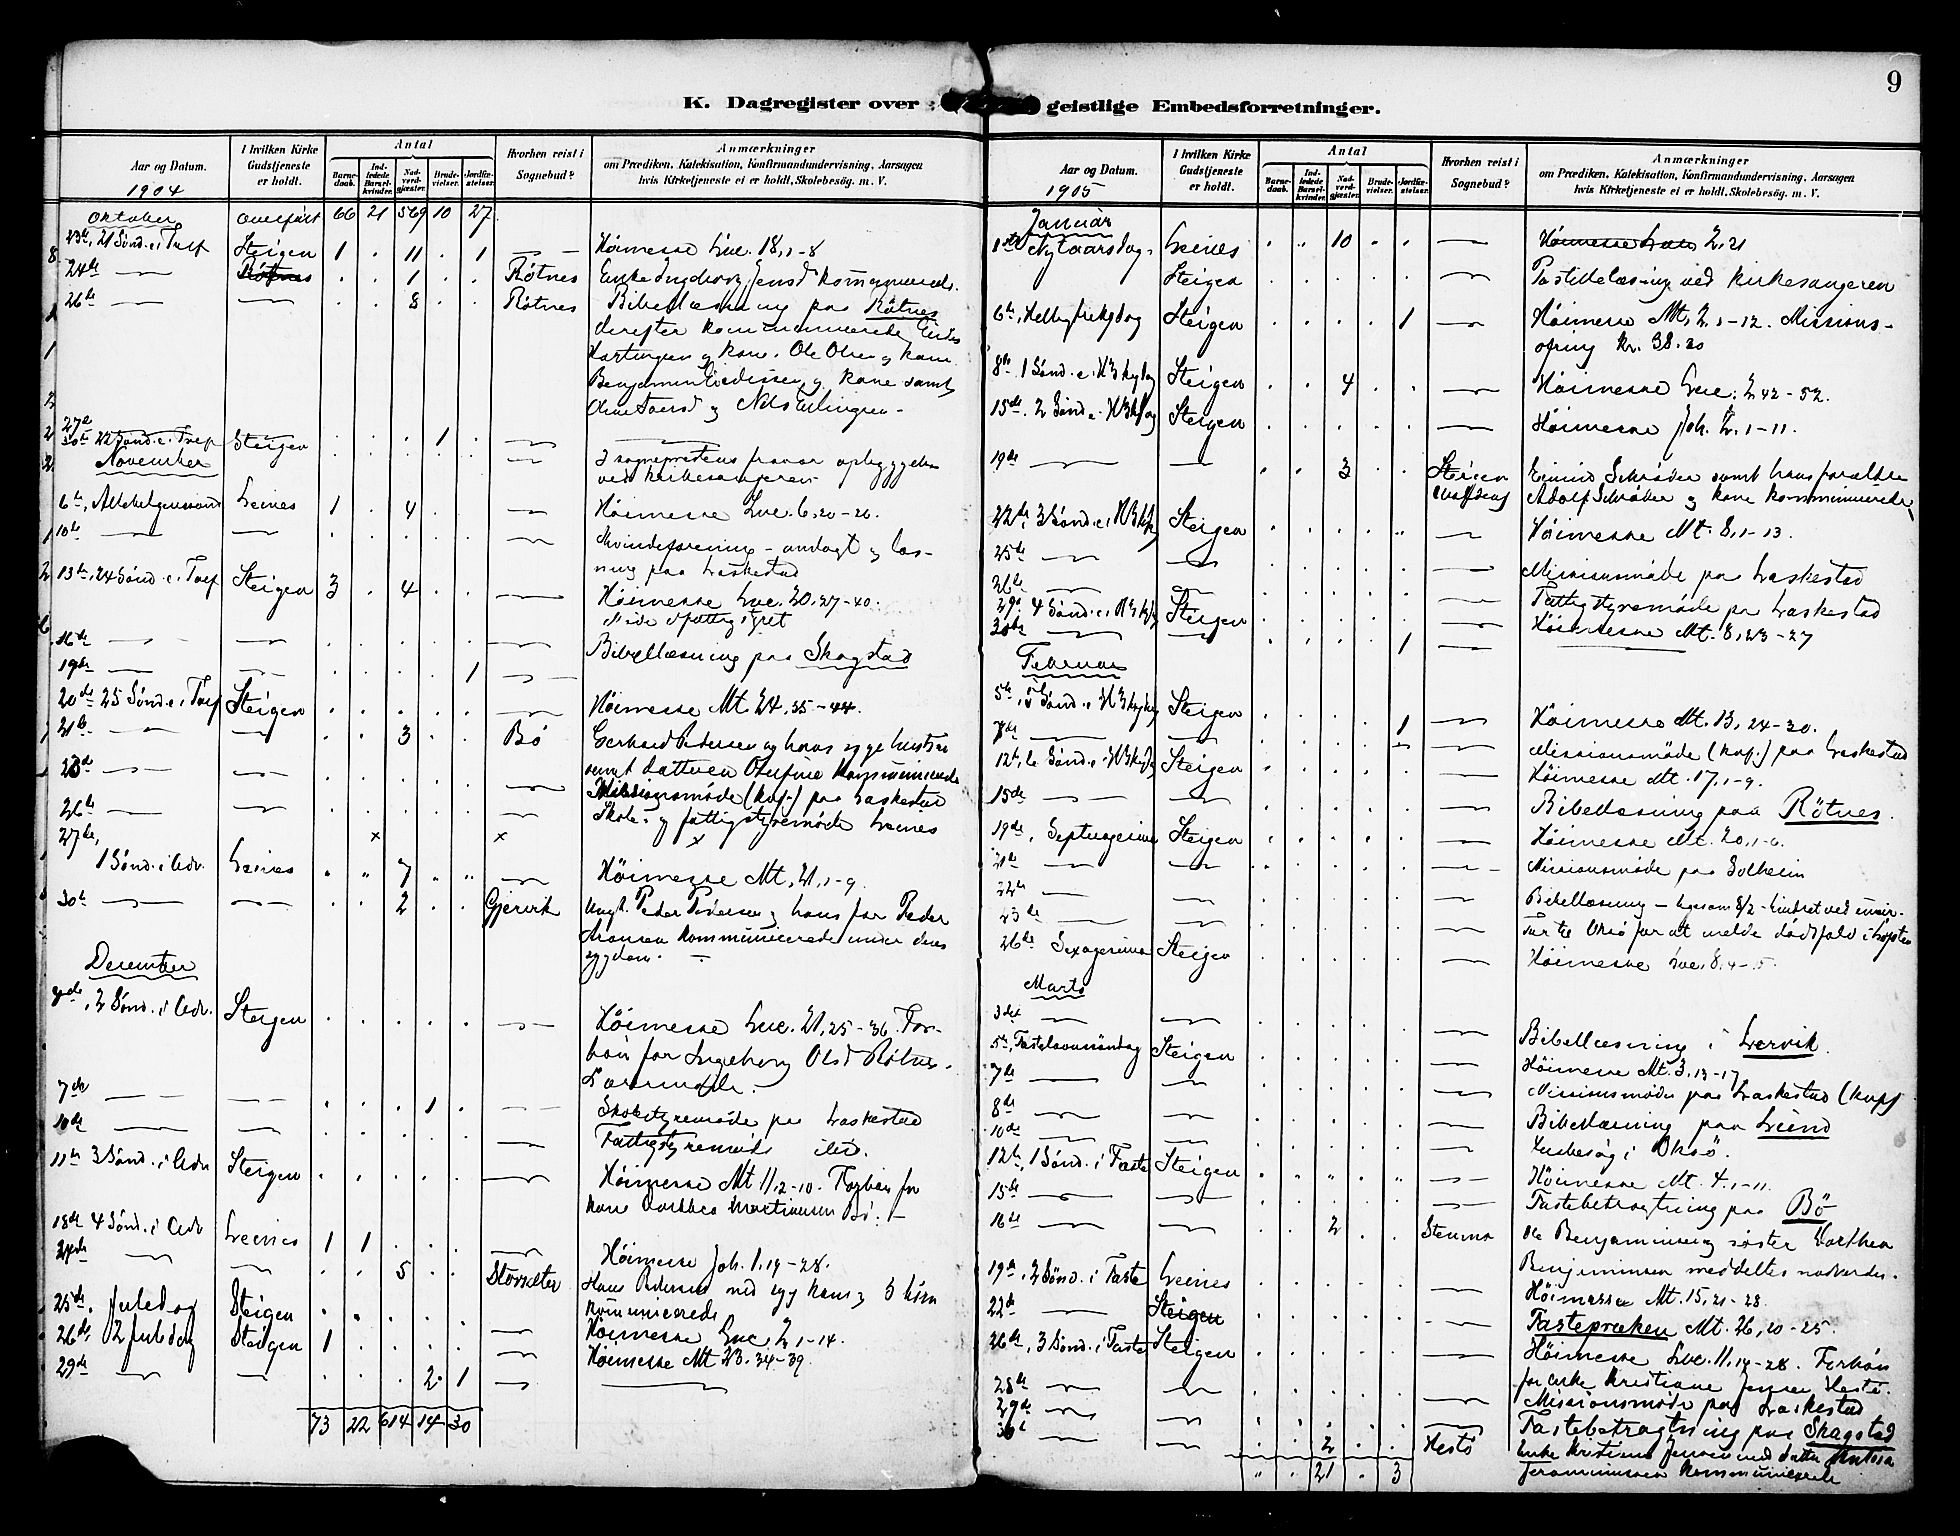 9
K. Dagregister over geistlige Embedsforretninger.
Aar og Datum.
1904
I hvilken Kirke Gudstjeneste er holdt.
Antal
Barnedaab. Indledede Barselkvinder. Nadverdgjæster. Brudevielser. Jordfæstelser.
Hvorhen reist i Sognebud?
Anmærkninger
om Prædiken, Katekisation, Konfirmandundervisning, Aarsagen
hvis Kirketjeneste ei er holdt, Skolebesøg, m. V.
Oktober overført 66 21 569 10 27
23de, 21 Sønd. e. Tref Steigen 1 . 11 . 1 Höimesse Luc. 18, 1-8
24de Rötnes . . 1 . . Rötnes Enke Ingeborg Jensd kommunicerede.
26de . . 8 . . Rötnes Bibellæsning paa Rötnes
derefter kommunicerede
og kone. Ole Olsen og kone
Benjamin og kone samt
og Nils
27de 1
30te 22 Sønd. e. Tref Steigen I sogneprestens fravær opbyggelse
ved kirkesangeren
November
6te, Allehelgenssønd Leines 1 . 4 . . Höimesse Luc. 6, 20-26.
10de Kvindeforening - andagt og læs-
ning paa Laskestad
13de, 24 Sønd. e. Tref Steigen 3 . 4 . . Höimesse Luc. 20, 27-40.
16de Bibellæsning paa Skagstad
19de 1
20de 25 Sønd. e. Tref Steigen Höimesse Mt. 24, 35-44.
21de . . 3 . . Bö Gerhard Pedersen og hans syge hustru
samt datteren Olufine kommunicerede
23de Missionsmöde (kap.) paa Laskestad
26de Skole- og fattigstyremöde Leines
27de, x x x
1 Sønd. i Adv. Leines . „ 7 „ „ Höimesse Mt. 21, 1-9.
30te . . 2 . . Gjervik Ungk. Peder Pedersen og hans far Peder
Aronsen kommunicerede under deres
sygdom. -
December
4de, 2 Sønd. i Adv. Steigen Höimesse Luc. 21, 25-36. For-
bön for Ingeborg Olsd Rötnes.
7de 1 Skolestyremöde paa Laskestad
10de Fattigstyremöde ibid.
11te 3 Sønd. i Adv Steigen Höimesse Mt 11, 2-10. Forbön for
Kone Dorthea Martinusen Bö. -
18de 4 Sønd. i Adv Leines 1 1 . . . Höimesse Joh. 1, 19-28.
. . 5 . . Storsæter Hans Pedersen med syg kone og 3 börn
kommunicerede
25de. Juledag Steigen Höimesse Luc. 2, 1-14.
26de. 2 Juledag Steigen 1 Höimesse Mt 23. 34-39.
29de 2. 1
73 22 614 14 30
Aar og Datum.
1905
I hvilken Kirke Gudstjeneste er holdt.
Antal
Barnedaab. Indledede Barselkvinder. Nadverdgjæster. Brudevielser. Jordfæstelser.
Hvorhen reist i Sognebud?
Anmærkninger
om Prædiken, Katekisation, Konfirmandundervisning, Aarsagen
hvis Kirketjeneste ei er holdt, Skolebesøg, m. V.
Januar
1ste Nytaarsdag. Leines . „ 10 . . Höimesse Luc 2, 21
Steigen ved kirkesangeren
6te, Hellig3kgsdag Steigen . . . . 1 Höimesse Mt. 2, 1-12. Missions-
ofring kr. 38.20
8de 1 Sønd. e. H3kgdag Steigen . . 4 . . Höimesse Luc. 2 42-52.
15de. 2 Sønd e. H3kgdag Steigen Höimesse Joh. 2. 1-11.
19de . . 3 . . Steigen Schröder samt hans forældre
Adolf Schröder og kone kommunicerede
22de 3 Sønd. e. H3kg Steigen Höimesse Mt. 8, 1-13.
25de Missionsmöde paa Laskestad
26de Fattigstyremöde paa Laskestad
29de 4 Sønd. e. H3kg Steigen Höimesse Mt. 8, 23-27
30te 1
Februar
5te, 5 Sønd. e. H3kgdag Steigen Höimesse Mt. 13, 24-30.
1 Missionsmöde (kap.) paa Laskestad
12te, 6 Sønd. e. H3kgdag Steigen Höimesse Mt. 17, 1-9.
15de Bibellæsning paa Rötnes.
19de, Septuagesima Steigen Höimesse Mt. 20, 1-6.
21de Missionsmöde paa Solheim
22de Bibellæsning - ligesom 8/2 - hindret ved uveir.
23de Tur til Oksö for at melde dödsfald i Lofoten
26de Sexagesima Steigen Höimesse Luc. 8, 4-15.
Marts
3die Bibellæsning i Lervik.
5te, Fastelavnssöndag Steigen Höimesse Mt. 3, 13-17
7de Missionsmöde paa Laskestad (kap)
8de Bibellæsning paa Leund
10de Husbesög i Oksö.
12te, 1 Sønd. i Faste Steigen Höimesse Mt. 4, 1-11.
15de Fastebetragtning paa Bö
16de . . 2 . . Stenmo Ole Benjaminsen og söster Dorthea
Benjaminsen meddeltes nadverden.
19de, 2 Sønd. i Faste Leines Höimesse Mt. 15, 21-28.
22de Steigen Fastepræken Mt. 26, 20-25.
26de, 3 Sønd. i Faste Steigen Höimesse Luc. 11, 14-28. Forbön
for enke Kristiane Jensen Hestö.
28de Missionsmöde paa Laskestad
29de Fastebetragtning paa Skagstad
30te . . 2 . . Hestö Enke Kristiane Jensen med datter Antona
Jeremiassen kommunicerede
„ . 21 . 3